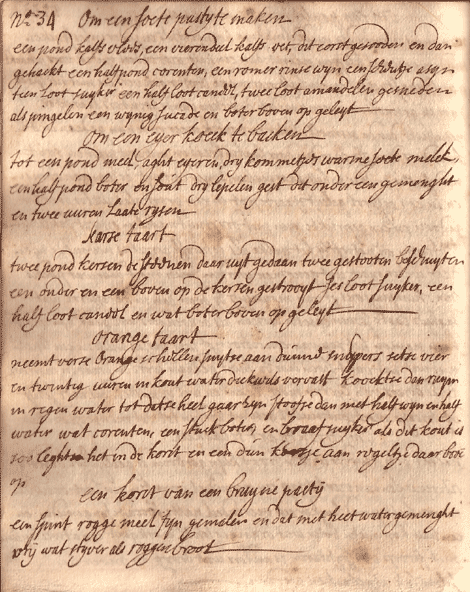 No 34 Om een soete pastyte maken
een pond kalfs vlees, een vierondel kalfs vet, dit eerst gesooden en dan
gehackt een half pond corenten, een romer rinse wyn een asyn
tien loot suyker een half loot candel, twee loot amandelen gesneden
als pingelen een wynig sucade en boter boven op geleyt
Om een eyer koeck te backen
tot een pond meel, aght eyeren, dry kommetjes warme soete melck,
een half pond boter en sout dry lepelen gest dit onder een gemenght
en twee uuren laate rysen
karse taart
twee pond kersen de steenen daar uyt gedaan twee gestooten beschuyten
een onder en een boven op de kersen gestrooyt ses loot suyker, een
half loot candel en wat boter boven op geleyt
orange taart
neemt verse orange schellen snytse aan dunne snippers setse vier
en twintig uuren in kout water dickwils vervat koocktse dan
in regen water tot datse heel gaar syn stooftse dan met half wyn en half
water wat corenten, een stuck boter, en braaf suyker als dit kout is
leght het in de korst en een dun aan regeltje daar boven
op
een korst van een bruyne pastij
een spint rogge meel fyn gemalen en dat met heet water gemenght
vrij wat styver als roggen broot